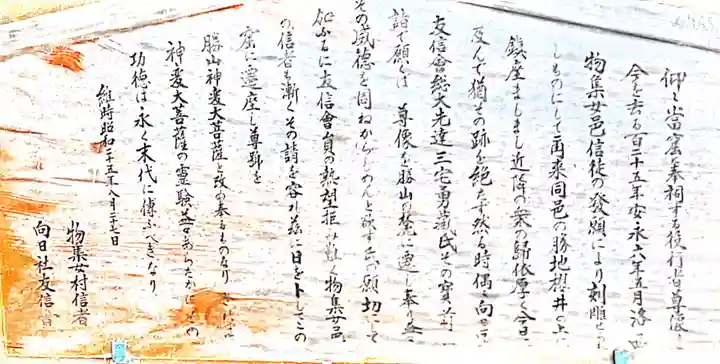 仰々當窟に奉祠する役行者尊像は
今を去る百二十五年安永六年五月洛西
物集女邑信徒の發願により刻雕せられ
しものにして爾来同邑の勝地櫻井の上に
鎮座ましまし近隣の衆の歸依厚く今日に
及んで猶その跡を絶たず然る時偶々向日町
友信會総大先達三宅勇蔵氏その寶前に
詣で願くは 尊像を勝山の麓に遷し奉り益々
その威徳を同ねからしめんと欲す氏の願切にして
加ふるに友信會員の熱望拒み難く物集女邑
の信者も漸くその請を容れ茲に日をトしてこの
窟に遷座し尊號を
勝山神変大菩薩と改め奉るものなり
神変大菩薩の霊験益々あらたかにその
功徳は永く末代に傳ふべきなり
維時昭和二十五年八月二十七日
物集女村信者
向日社友信會